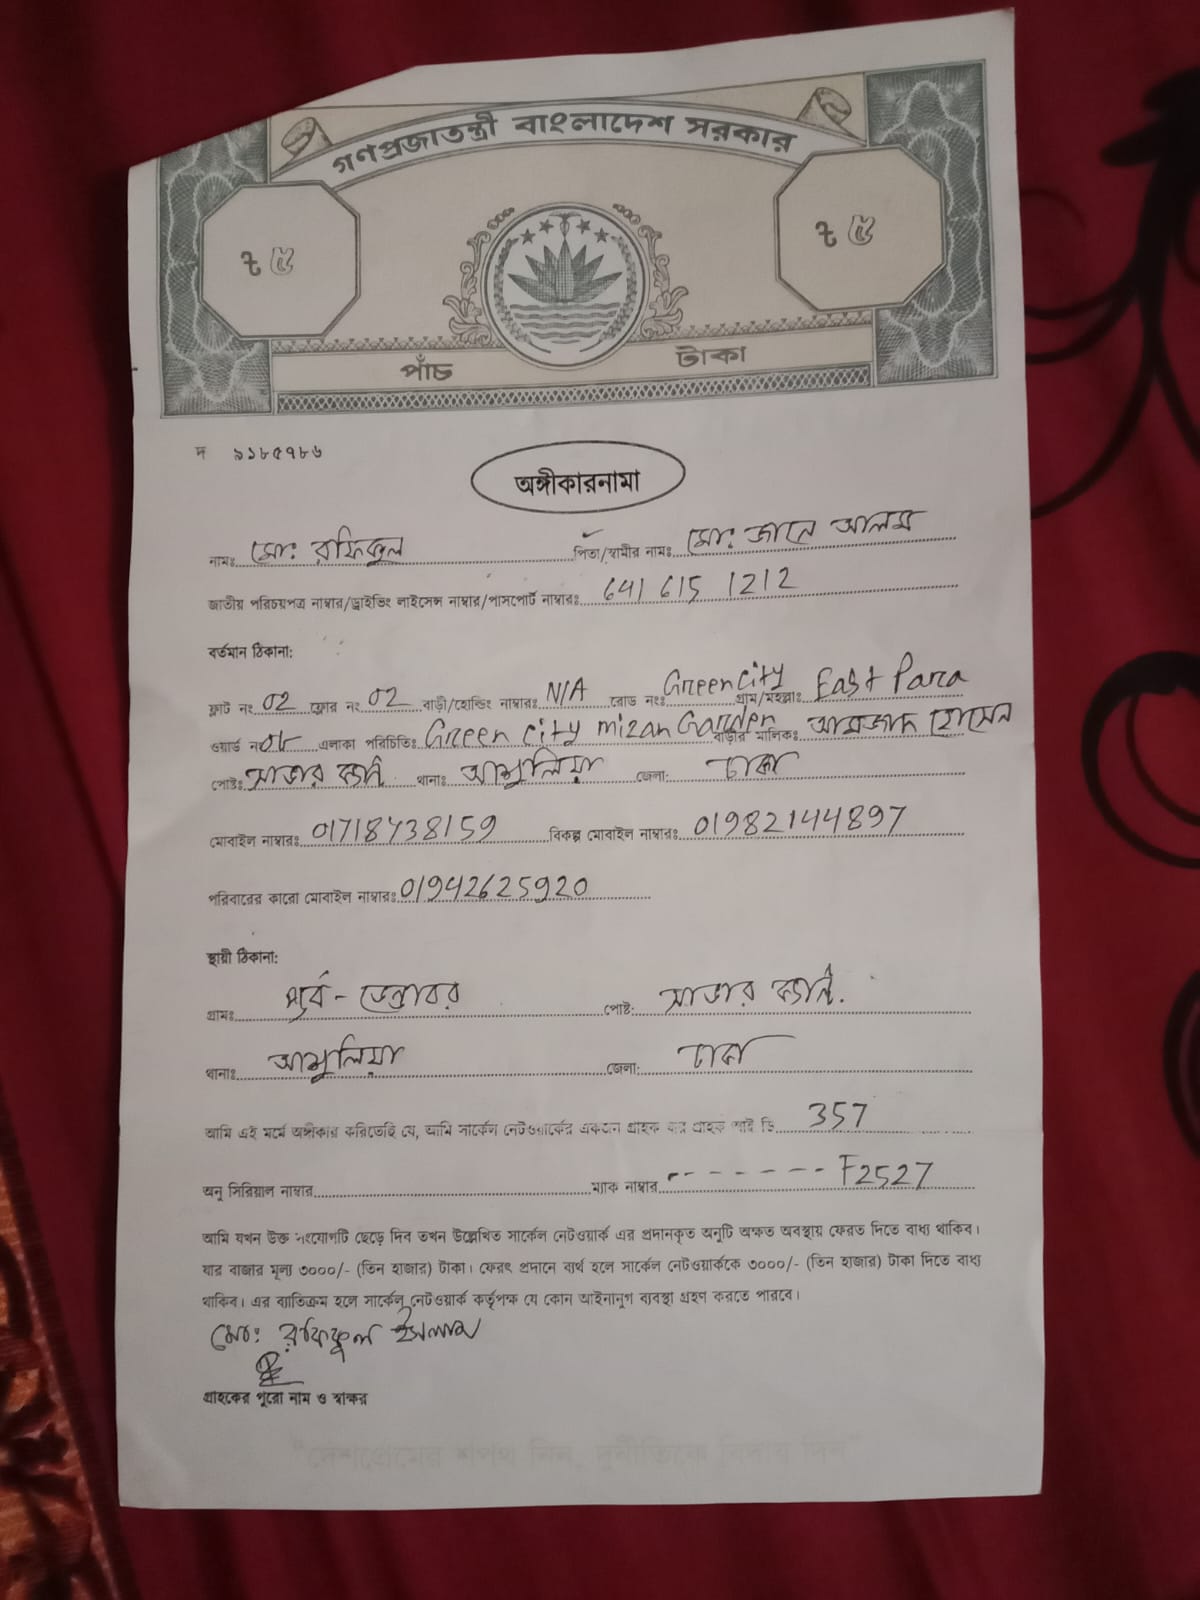 গণপ্রজাতন্ত্রী বাংলাদেশ সরকার
৳ ৫ ৳ ৫
পাঁচ টাকা
দ ৯১৮৫৭৮৬
অঙ্গীকারনামা
নামঃ মোঃ রফিকুল পিতা/স্বামীর নামঃ মোঃ জানে আলম
জাতীয় পরিচয়পত্র নাম্বার/ড্রাইভিং লাইসেন্স নাম্বার/পাসপোর্ট নাম্বারঃ 641 615 1212
বর্তমান ঠিকানা:
ফ্লাট নং 02 ফ্লোর নং 02 বাড়ী/হোল্ডিং নাম্বারঃ N/A রোড নং Green city গ্রাম/মহল্লাঃ East Para
ওয়ার্ড নং ০৮ এলাকা পরিচিতিঃ Green city mizan Garden বাড়ীর মালিকঃ আমজাদ হোসেন
পোষ্টঃ সাভার ক্যান্ট. থানাঃ আশুলিয়া জেলা: ঢাকা
মোবাইল নাম্বারঃ 01718438159 বিকল্প মোবাইল নাম্বারঃ 01982144897
পরিবারের কারো মোবাইল নাম্বারঃ 01942625920
স্থায়ী ঠিকানা:
গ্রামঃ পূর্ব - ডেন্ডাবর পোষ্ট: সাভার ক্যান্ট.
থানাঃ আশুলিয়া জেলা: ঢাকা
আমি এই মর্মে অঙ্গীকার করিতেছি যে, আমি সার্কেল নেটওয়ার্কের একজন গ্রাহক যার গ্রাহক আই ডি 357
অনু সিরিয়াল নাম্বার ম্যাক নাম্বার - - - - - - - F2527
আমি যখন উক্ত সংযোগটি ছেড়ে দিব তখন উল্লেখিত সার্কেল নেটওয়ার্ক এর প্রদানকৃত অনুটি অক্ষত অবস্থায় ফেরত দিতে বাধ্য থাকিব।
যার বাজার মূল্য ৩০০০/- (তিন হাজার) টাকা। ফেরৎ প্রদানে ব্যর্থ হলে সার্কেল নেটওয়ার্ককে ৩০০০/- (তিন হাজার) টাকা দিতে বাধ্য
থাকিব। এর ব্যতিক্রম হলে সার্কেল নেটওয়ার্ক কর্তৃপক্ষ যে কোন আইনানুগ ব্যবস্থা গ্রহণ করতে পারবে।
মোঃ রফিকুল ইসলাম
গ্রাহকের পুরো নাম ও স্বাক্ষর
"দেশপ্রেমের শপথ নিন, দুর্নীতিকে বিদায় দিন"